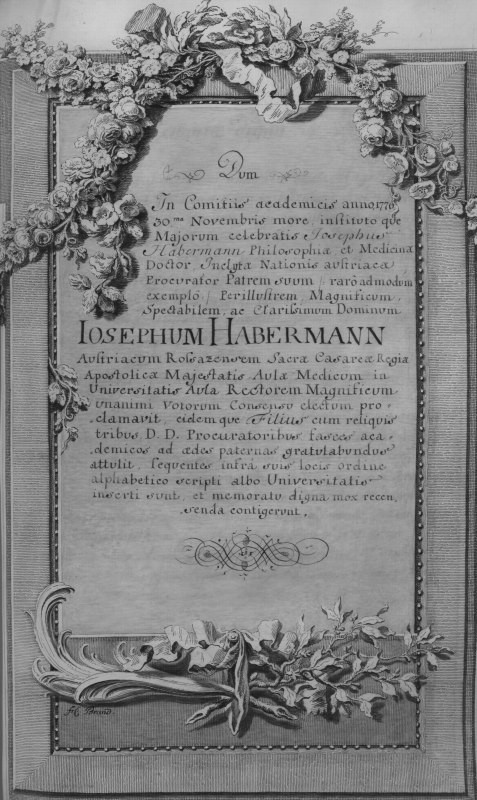 Dum
In Comitiis academicis anno 1770
30.mo Novembris more, instituto que
Majorum celebratis Josephus
Habermann Philosophiæ et Medicinæ
Doctor Inclytæ Nationis austriacæ
Procurator Patrem suum /: raro admodum
exemplo :/ Perillustrem, Magnificum,
Spectabilem, ac Clarissimum Dominum
IOSEPHUM HABERMANN
Austriacum Rossazensem Sacræ Cæsareæ Regiæ
Apostolicæ Majestatis Aulæ Medicum in
Universitatis Aula Rectorem Magnificum
unanimi Votorum Consensu electum pro-
clamavit, eidem que Filius cum reliquis
tribus D. D. Procuratoribus fasces aca-
demicos ad ædes paternas gratulabundus
attulit, sequentes infra suis locis ordine
alphabetico scripti albo Universitatis
inserti sunt, et memoratu digna mox recen,
senda contigerunt.